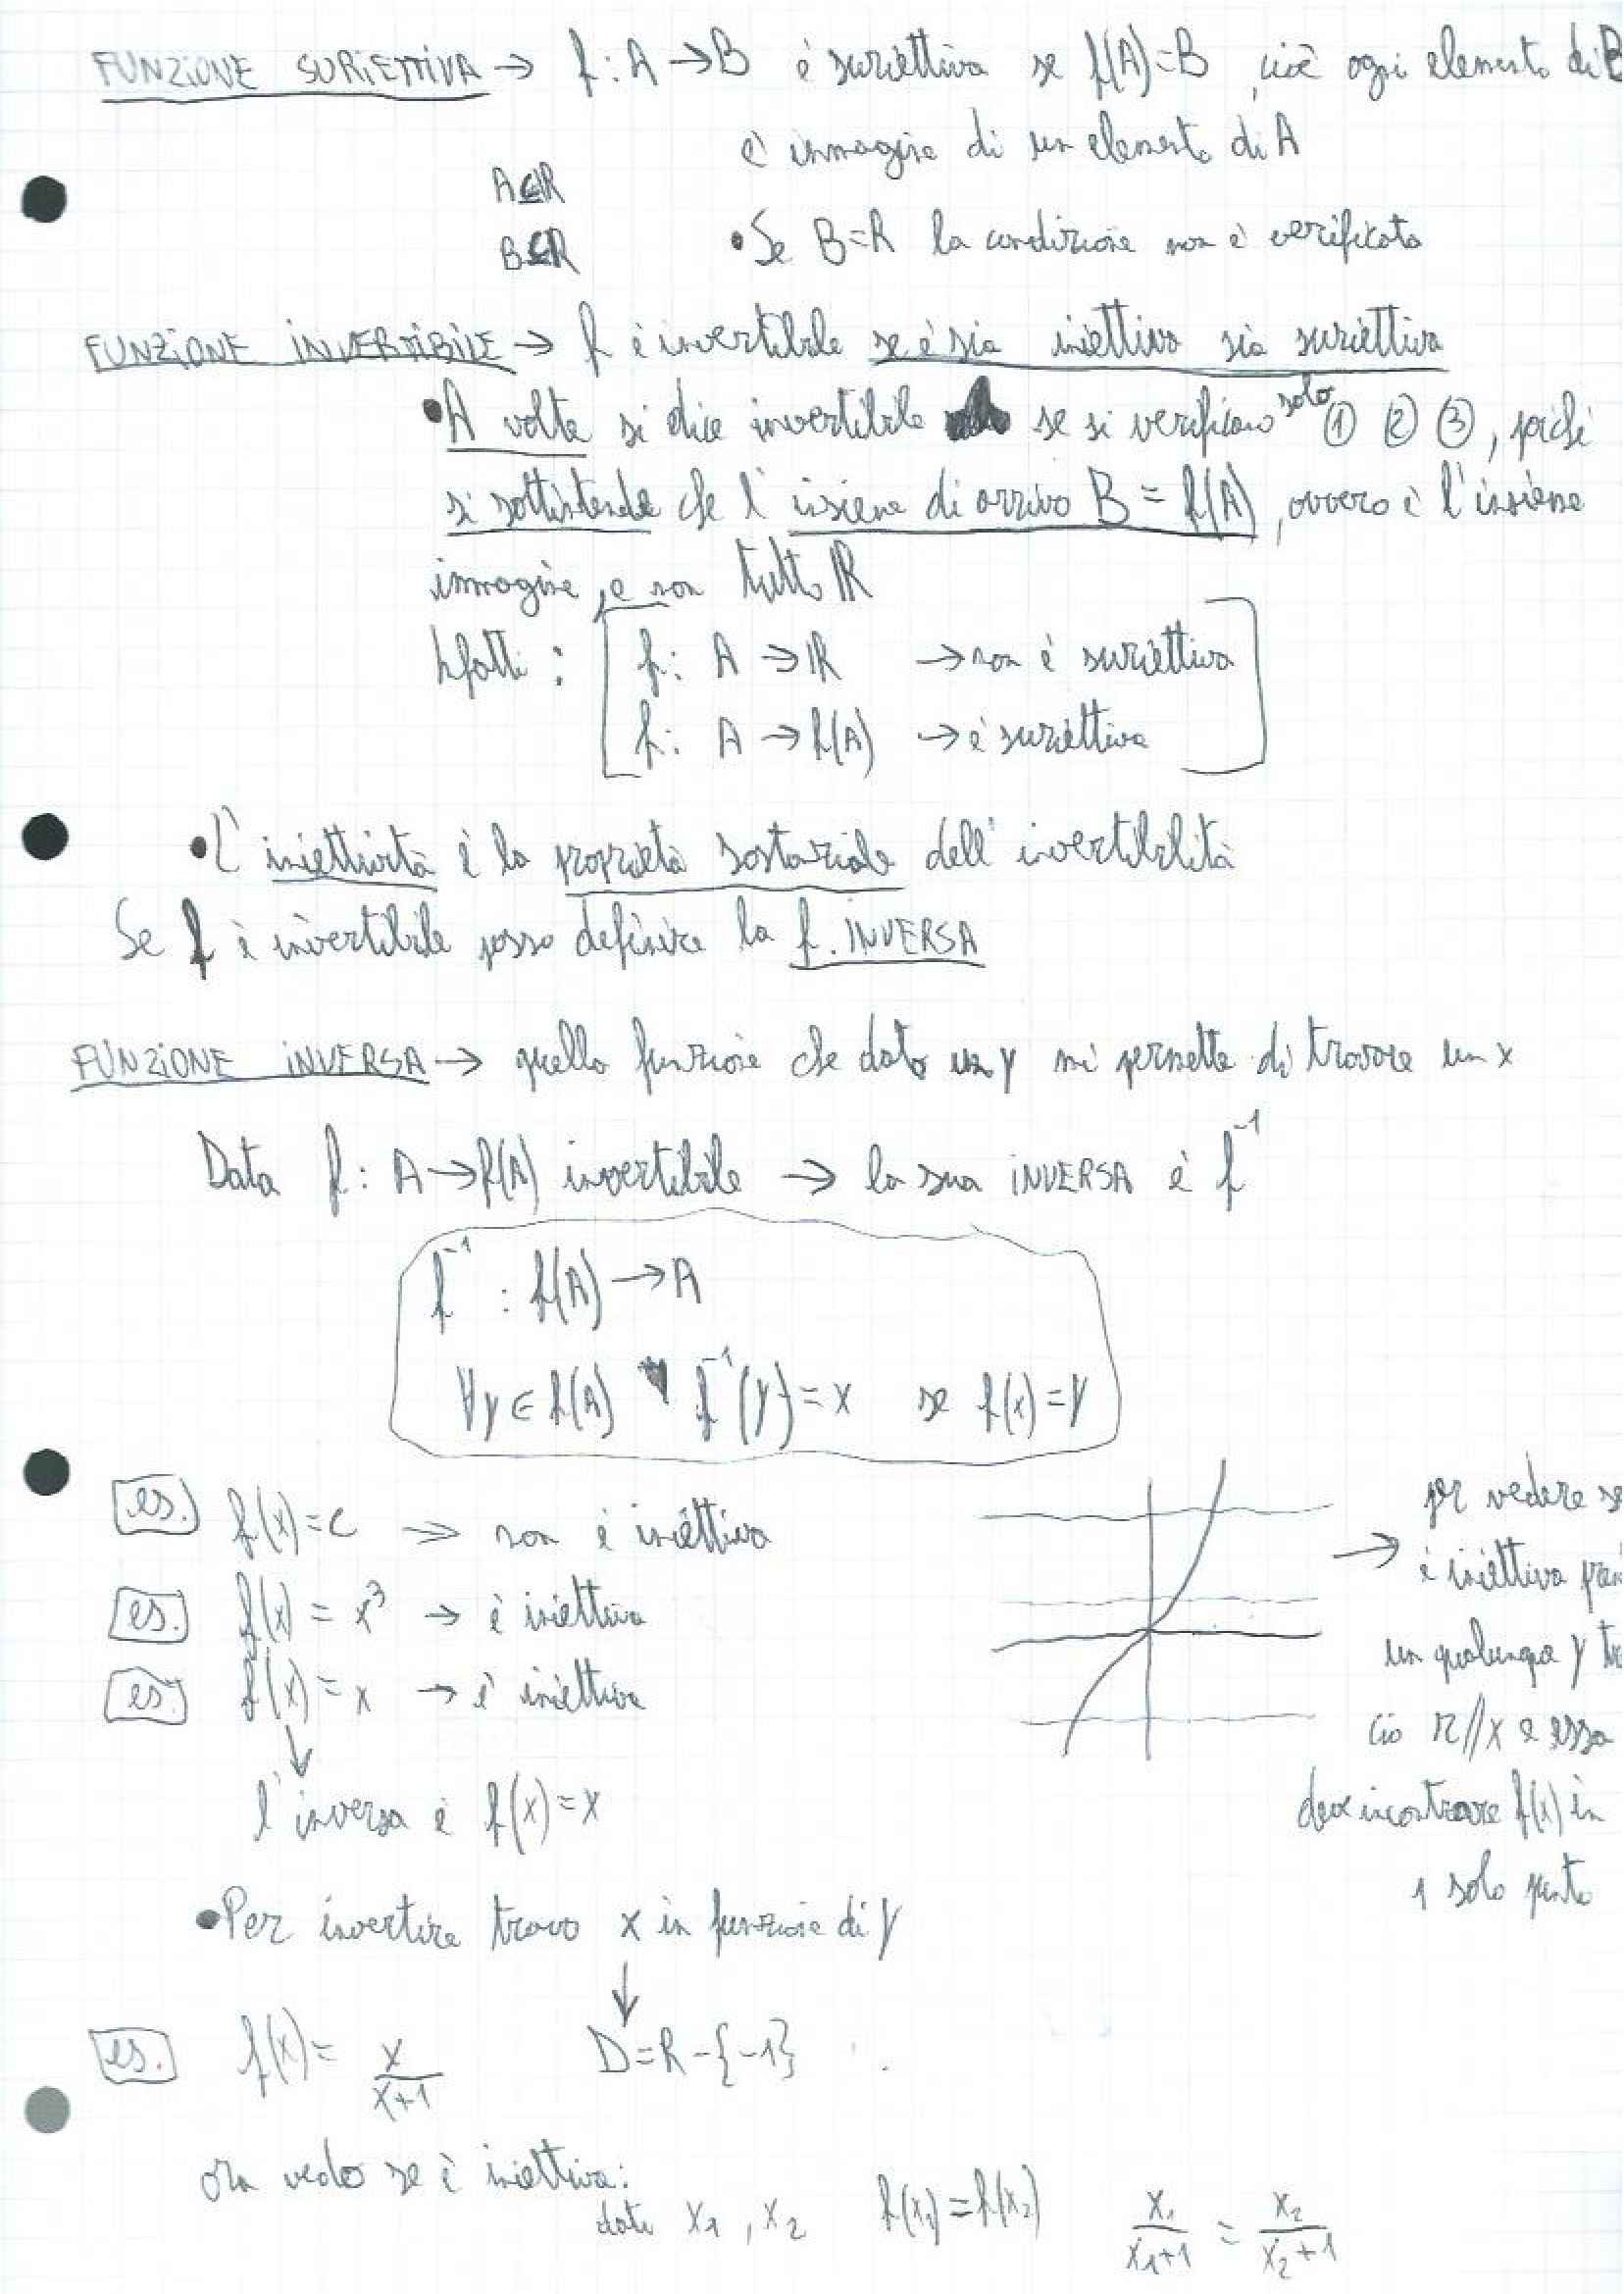 FUNZIONE SURIETTIVA → f: A → B è suriettiva se f(A)=B, cioè ogni elemento di B
è immagine di un elemento di A
A⊆R
B⊆R
• Se B=R la condizione non è verificata
FUNZIONE INVERTIBILE → f è invertibile se è sia iniettiva sia suriettiva
• A volte si dice invertibile se si verificano solo ① ② ③, poiché
si sottintende che l'insieme di arrivo B = f(A), ovvero è l'insieme
immagine, e non tutto R
Infatti: [ f: A → R → non è suriettiva
f: A → f(A) → è suriettiva ]
• L'iniettività è la proprietà sostanziale dell'invertibilità
Se f è invertibile posso definire la f. INVERSA
FUNZIONE INVERSA → quella funzione che dato un y mi permette di trovare un x
Data f: A → f(A) invertibile → la sua INVERSA è f⁻¹
f⁻¹ : f(A) → A
∀y ∈ f(A) f⁻¹(y) = x se f(x) = y
es. f(x) = c → non è iniettiva
es. f(x) = x³ → è iniettiva
es. f(x) = x → è iniettiva
↓
l'inversa è f(x) = x
→ per vedere se
è iniettiva
un qualunque y
cio r//x e essa
deve incontrare f(x) in
1 solo punto
• Per invertire trovo x in funzione di y
↓
es. f(x) = x/(x+1) D = R - {-1}
ora vedo se è iniettiva:
dati x₁, x₂ f(x₁) = f(x₂) x₁/(x₁+1) = x₂/(x₂+1)